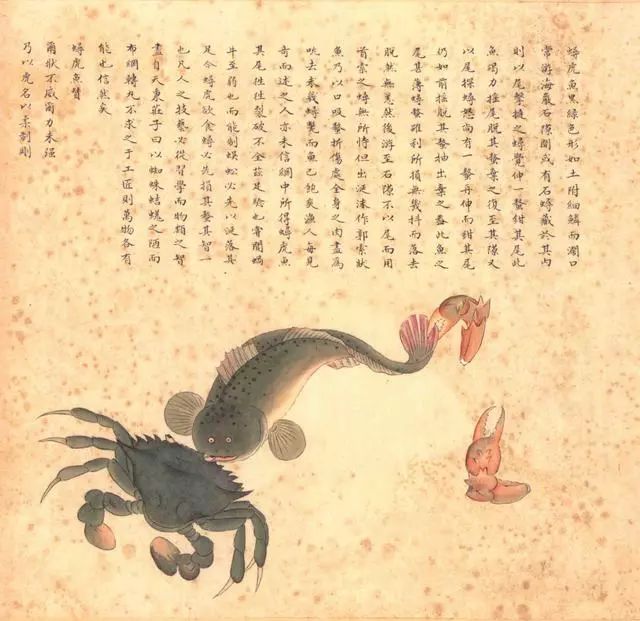 蟳虎魚黑綠色形如土附細鱗而濶口
常游海巖石隙間或有石蟳藏於其內
則以尾擊撻之蟳覺伸一螯鉗其尾此
魚竭力擺尾脫其螯棄之復至其隙又
以尾探蟳怒尚有一螯再伸而鉗其尾
仍如前擺脫其螯抽出棄之蓋此魚之
尾甚薄蟳螯雖利所損無幾抖而落去
脫然無恙然後游至石隙不以尾而用
首索之蟳無所恃但出涎沫作郭索狀
魚乃以口吸螯折傷處全身之肉盡為
吮去未幾蟳斃而魚已飽矣漁人每見
奇而述之人亦未信網中所得蟳虎魚
其尾往往裂破不全茲足驗也嘗聞蝎
斗至弱也而能制蜈蚣必先以涎落其
足今蟳虎欲食蟳必先損其螯其智一
也凡人之技藝必從習學而物類之智
盡自天秉莊子曰以蜘蛛蛣蜣之陋而
布網轉丸不求之于工匠則萬物各有
能也信然矣
蟳虎魚贊
爾狀不威爾力未强
乃以虎名以柔制剛